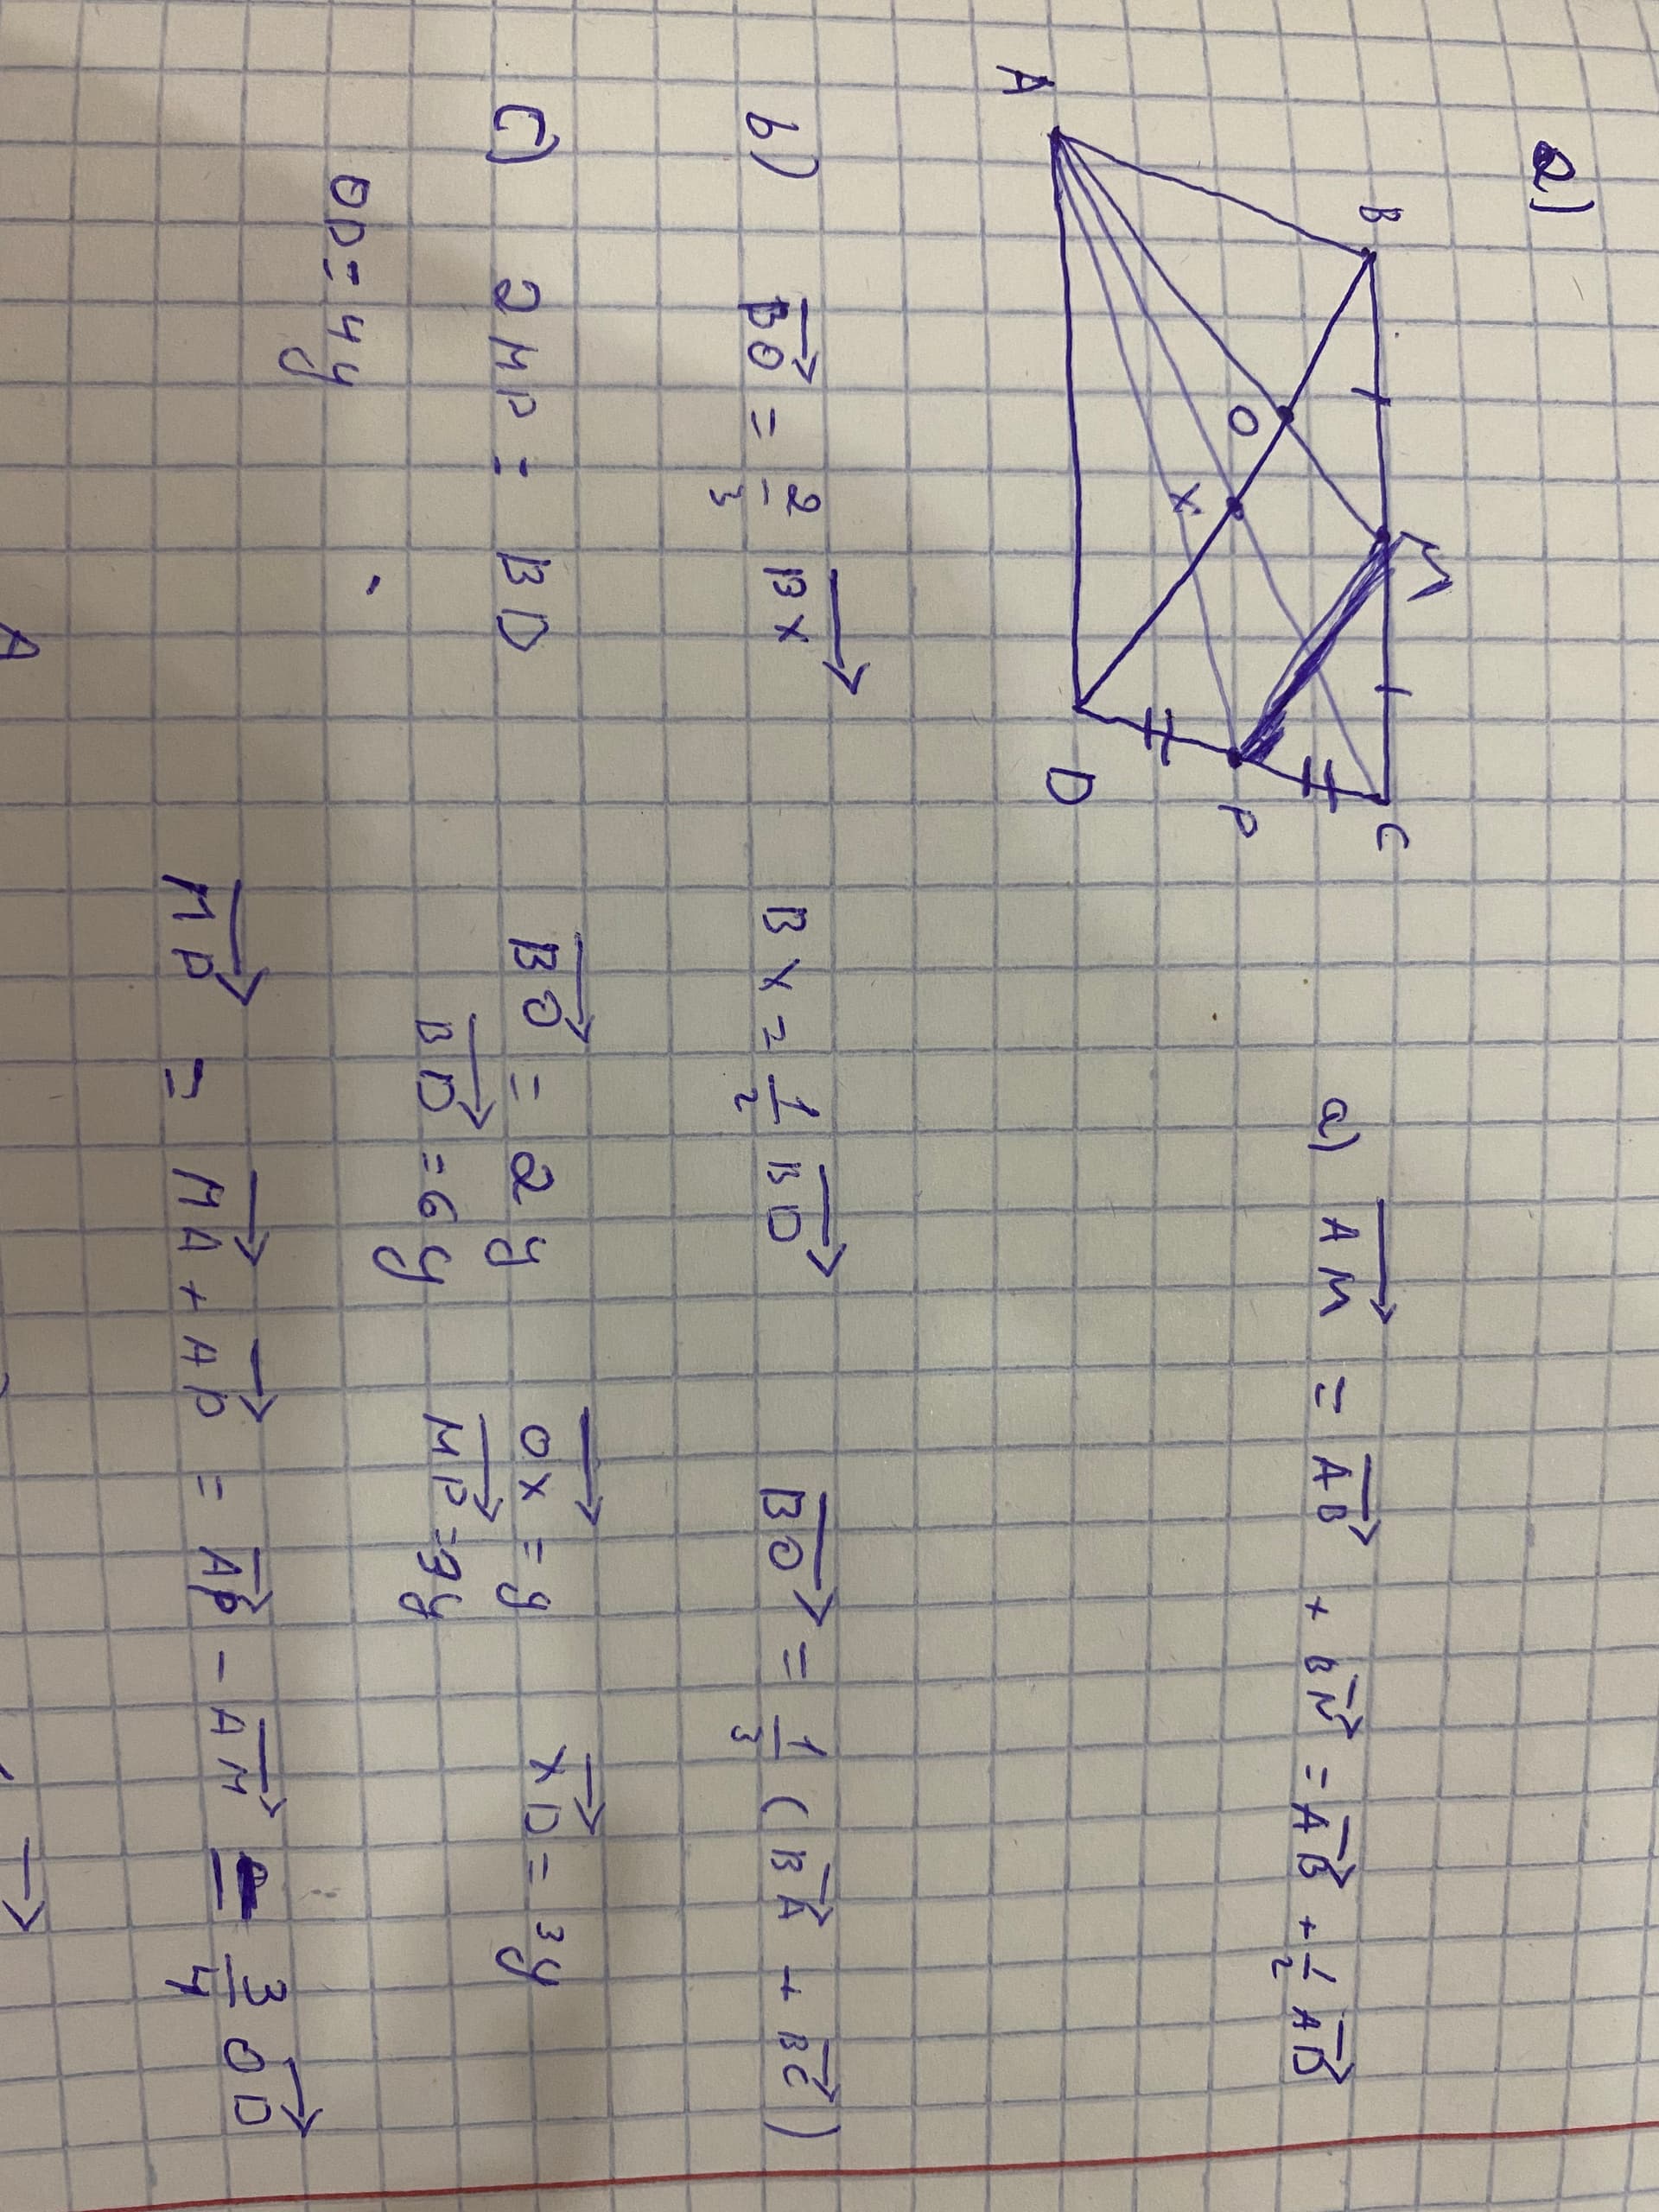 a)
B M C
O X P
A D
a) AM = AB + BM = AB + 1/2 AD
b) BO = 2/3 BX BX = 1/2 BD BO = 1/3 (BA + BC)
c) 2MP = BD BO = 2y OX = y XD = 3y
BD = 6y MP = 3y
OD = 4y
MP = MA + AP = AP - AM = 3/4 OD
A